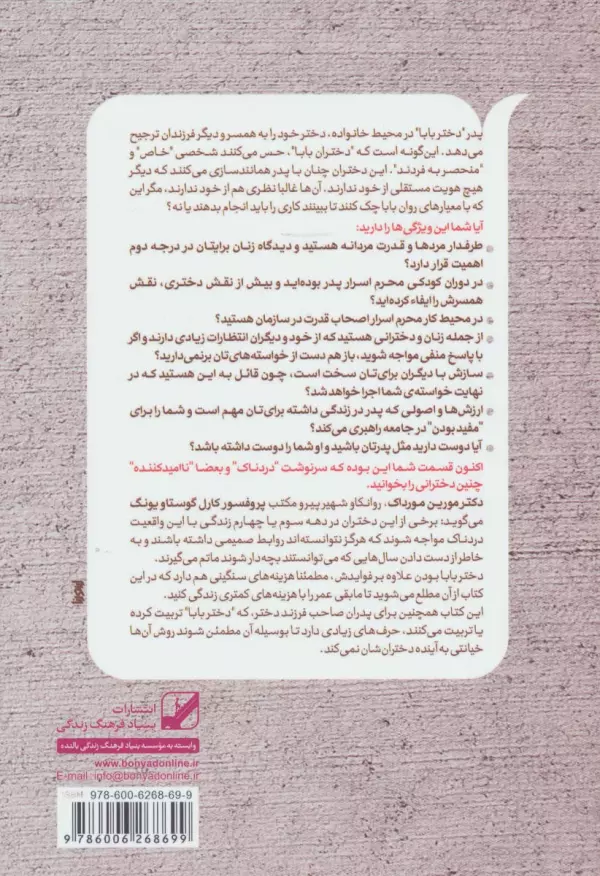 پدر "دختر بابا" در محیط خانواده، دختر خود را به همسر و دیگر فرزندان ترجیح
می‌دهد. این‌گونه است که "دختران بابا"، حس می‌کنند شخصی "خاص" و
"منحصر به فردند". این دختران چنان با پدر همانندسازی می‌کنند که دیگر
هیچ هویت مستقلی از خود ندارند. آن‌ها غالبا نظری هم از خود ندارند، مگر این
که با معیارهای روان بابا چک کنند تا ببینند کاری را باید انجام بدهند یا نه؟
آیا شما این ویژگی‌ها را دارید:
طرفدار مردها و قدرت مردانه هستید و دیدگاه زنان برایتان در درجه دوم
اهمیت قرار دارد؟
در دوران کودکی محرم اسرار پدر بوده‌اید و بیش از نقش دختری، نقش
همسرش را ایفاء کرده‌اید؟
در محیط کار محرم اسرار اصحاب قدرت در سازمان هستید؟
از جمله زنان و دخترانی هستید که از خود و دیگران انتظارات زیادی دارند و اگر
با پاسخ منفی مواجه شوید، باز هم دست از خواسته‌های‌تان برنمی‌دارید؟
سازش با دیگران برای‌تان سخت است، چون قائل به این هستید که در
نهایت خواسته‌ی شما اجرا خواهد شد؟
ارزش‌ها و اصولی که پدر در زندگی داشته برای‌تان مهم است و شما را برای
"مفید بودن" در جامعه راهبری می‌کند؟
آیا دوست دارید مثل پدرتان باشید و او شما را دوست داشته باشد؟
اکنون قسمت شما این بوده که سرنوشت "دردناک" و بعضا "ناامیدکننده"
چنین دخترانی را بخوانید.
دکتر مورین مورداک، روانکاو شهیر پیرو مکتب پروفسور کارل گوستاو یونگ
می‌گوید: برخی از این دختران در دهه سوم یا چهارم زندگی با این واقعیت
دردناک مواجه شوند که هرگز نتوانسته‌اند روابط صمیمی داشته باشند و به
خاطر از دست دادن سال‌هایی که می‌توانستند بچه‌دار شوند ماتم می‌گیرند.
دختر بابا بودن علاوه بر فوایدش، مطمئنا هزینه‌های سنگینی هم دارد که در این
کتاب از آن مطلع می‌شوید تا مابقی عمر را با هزینه‌های کمتری زندگی کنید.
این کتاب همچنین برای پدران صاحب فرزند دختر، که "دختر بابا" تربیت کرده
یا تربیت می‌کنند، حرف‌های زیادی دارد تا بوسیله آن مطمئن شوند روش آن‌ها
خیانتی به آینده دختران‌شان نمی‌کند.
انتشارات
بنیاد فرهنگ زندگی
وابسته به مؤسسه بنیاد فرهنگ زندگی بالنده
www.bonyadonline.ir
E-mail:info@bonyadonline.ir
978-600-6268-69-9
9 786006 268699